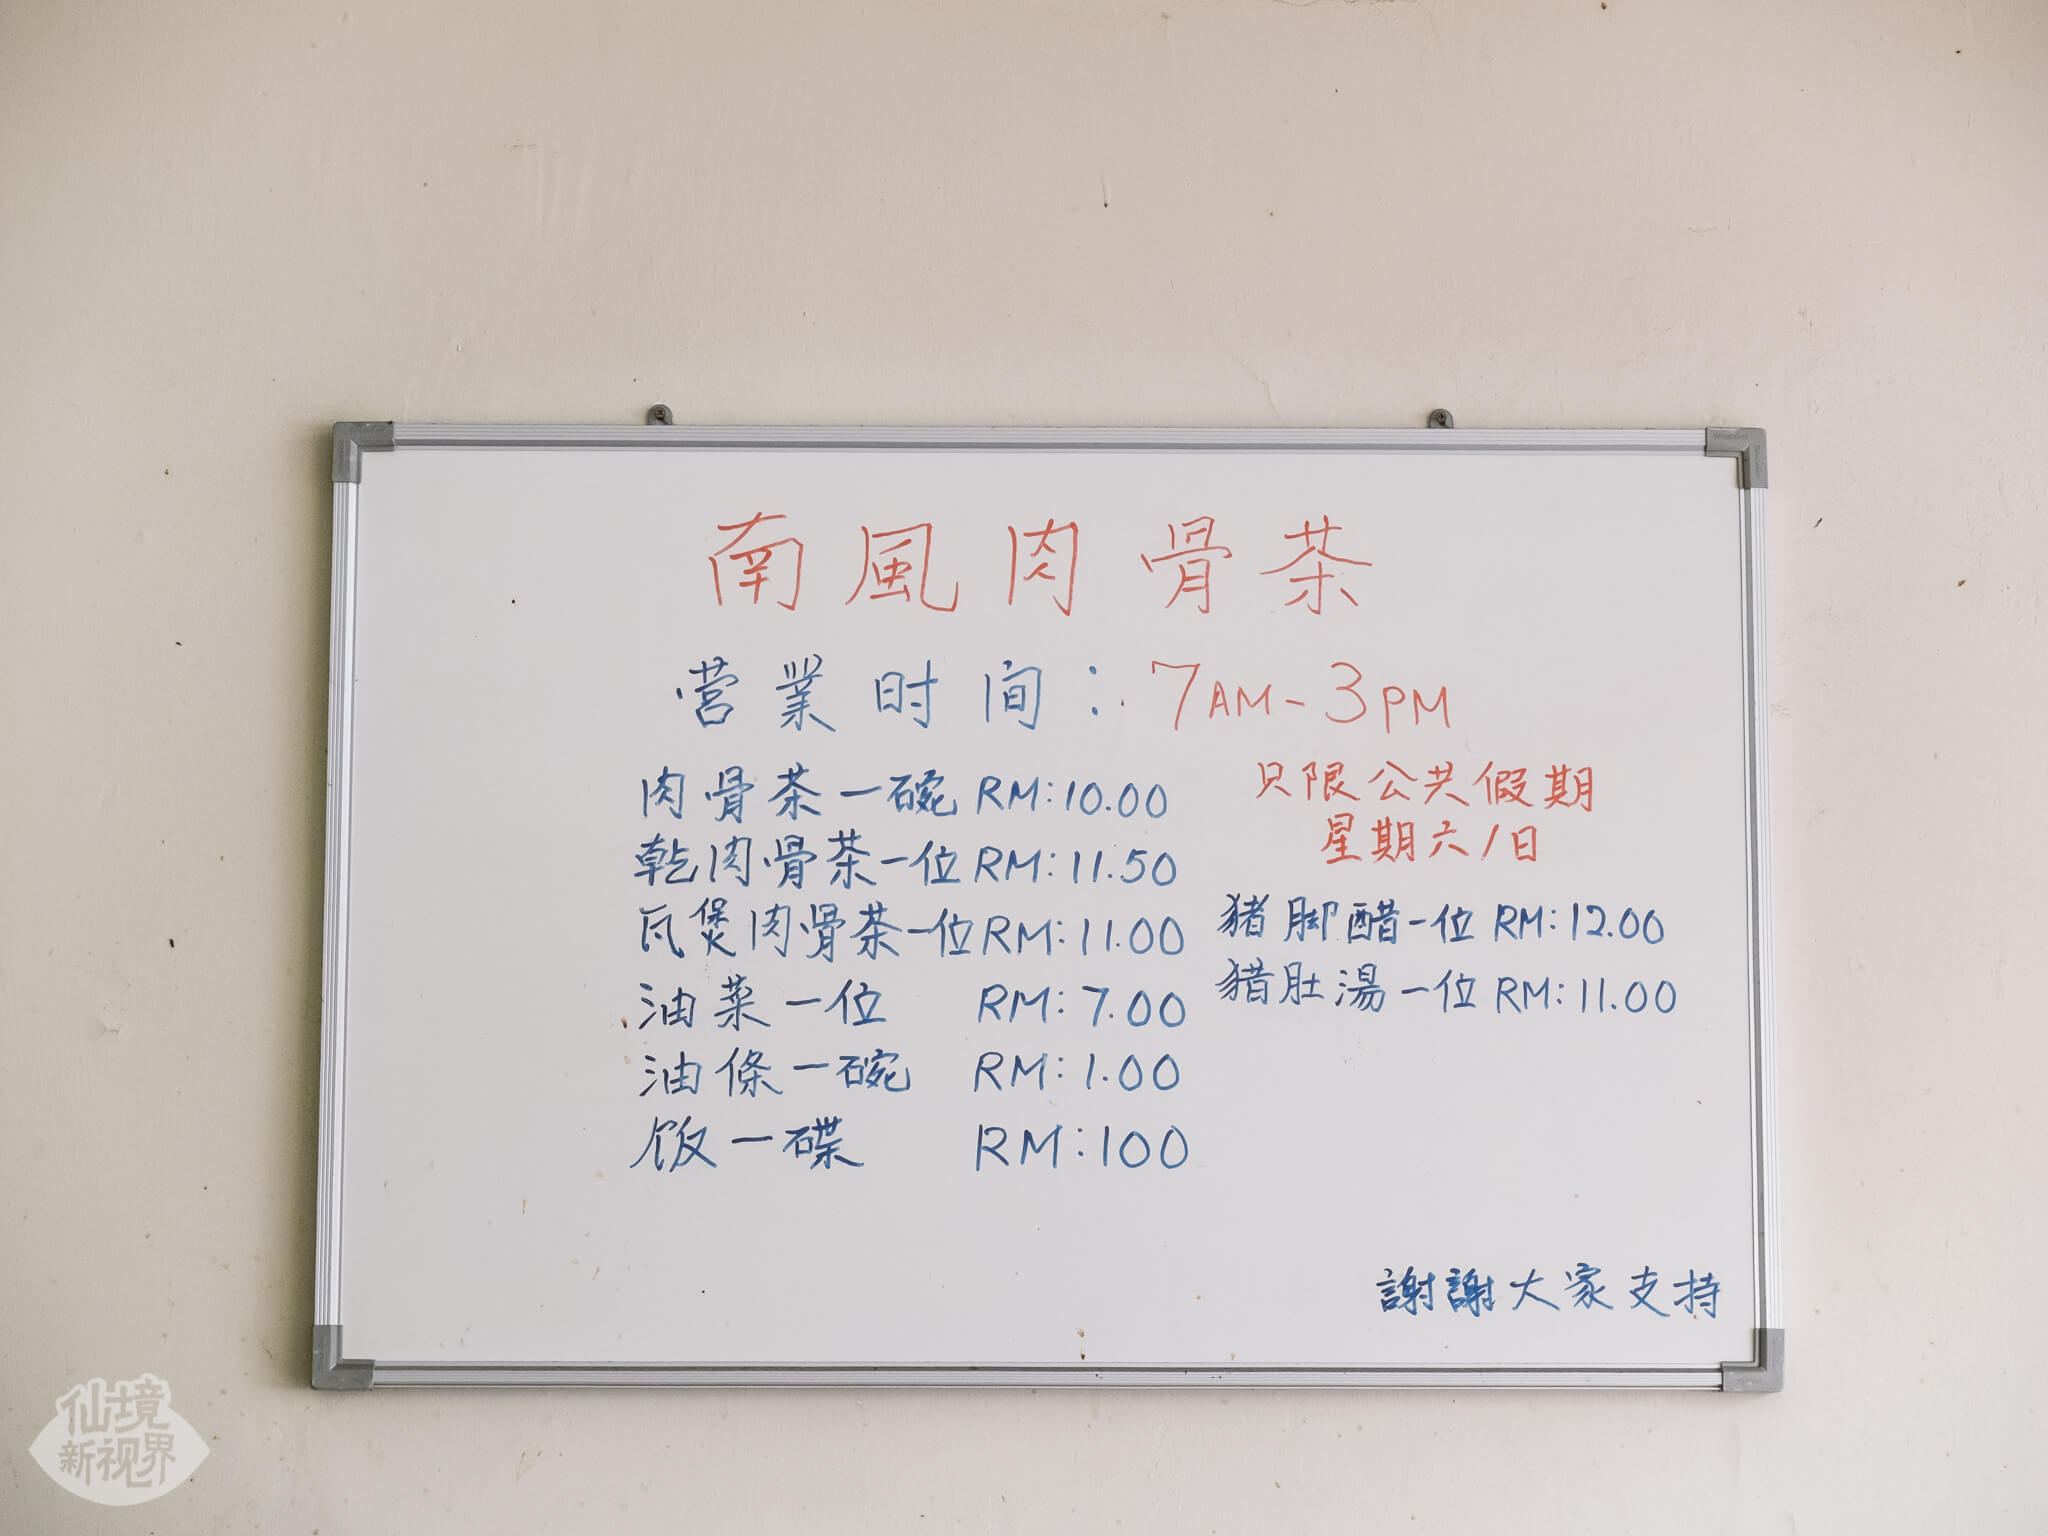 南風肉骨茶
营業时间：7AM-3PM
肉骨茶一碗 RM:10.00
乾肉骨茶一位 RM:11.50
瓦煲肉骨茶一位 RM:11.00
油菜一位 RM:7.00
油條一碗 RM:1.00
饭一碟 RM:100
只限公共假期
星期六/日
猪脚醋一位 RM:12.00
猪肚湯一位 RM:11.00
謝謝大家支持
仙境
新视界